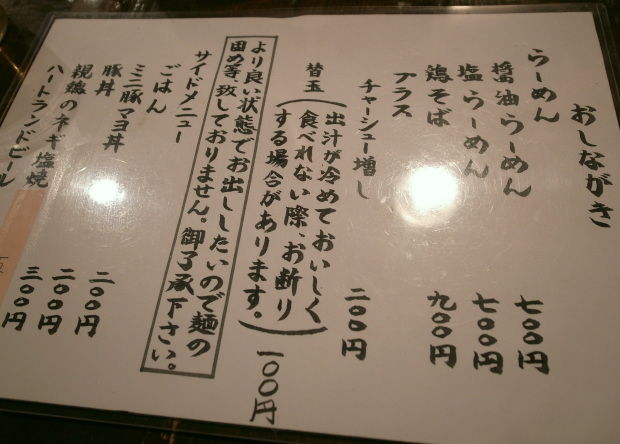 おしながき
らーめん
醤油らーめん 七〇〇円
塩らーめん 七〇〇円
鶏そば 九〇〇円
プラス
チャーシュー増し 二〇〇円
替玉(出汁が冷めておいしく
食べれない際、お断り
する場合があります。) 一〇〇円
より良い状態でお出ししたいので麺の
固め等、致しておりません。御了承下さい。
サイドメニュー
ごはん 二〇〇円
ミニ豚マヨ丼 二〇〇円
豚丼 三〇〇円
親鶏のネギ塩焼
ハートランドビール